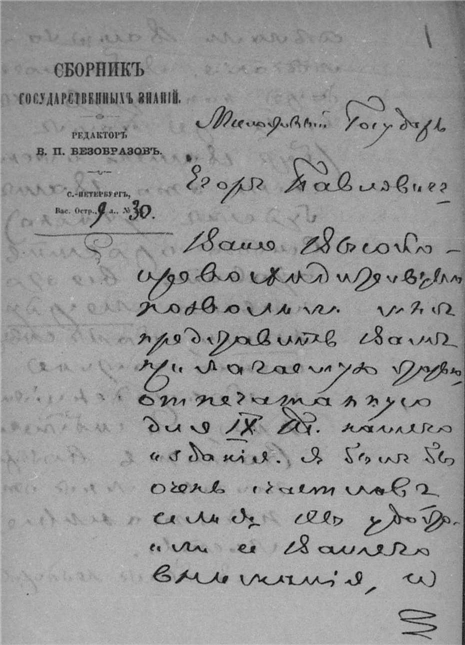 1
СБОРНИКЪ
ГОСУДАРСТВЕННЫХЪ ЗНАНІЙ.
РЕДАКТОРЪ
В. П. БЕЗОБРАЗОВЪ.
С.-ПЕТЕРБУРГЪ,
Вас. Остр., 9 л., № 30.
Милостивый Государь
Егоръ Павловичъ
Ваше Высоко-
превосходительство
позвольте мнѣ
представить Вамъ
прилагаемую
отпечатанную
для IX т. нашего
изданія. Я былъ бы
очень счастливъ
если бы Вы удостои-
ли ее Вашего
вниманія, и